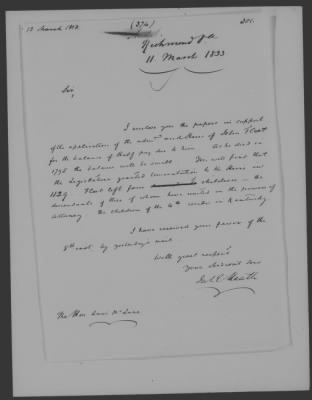 13 March 1833.
(374)
Richmond Va
11. March 1833
Sir,
I inclose you the papers in support
of the application of the admr and heirs of John Flat
for the balance of half pay due to him. As he died in
1795 the balance will be small. You will find that
the Legislature granted commutation to the heirs in
1829. Flat left four children — the
descendants of three of whom have united in the power of
Attorney. The children of the 4th reside in Kentucky.
I have received your favor of the
8th inst. by yesterday's mail
With great respect
Your obedient Sev
The Hon. Louis McLane